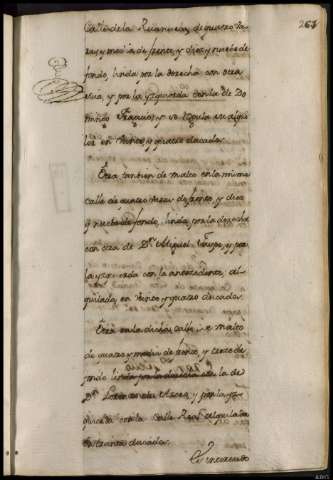 261
Calle de la Ruanueva, de quatro va
ras y media de frente, y diez y nueve de
fondo, linda por la derecha con otra
suya, y por la yzquierda con la de Do
mingo y se regula su alqui
ler en veinte y quatro ducados.
Otra tambien de malto en la misma
calle de quatro varas de frente, y diez
y nueve de fondo, linda por la derecha
con otra de Dn. Miguel y por
la yzquierda con la antecedente, al
quilada en veinte y quatro ducados.
Otra en la dicha calle, de malto
de quatro y media de frente, y trece de
fondo linda por la derecha con la de
Dn. Lorenzo de y por la yz
quierda con la Calle Real alquilada
en treinta ducados.